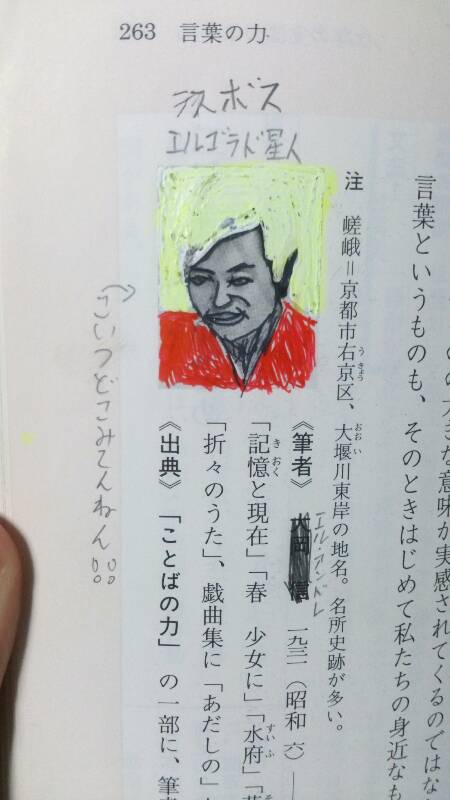 263 言葉の力
ラスボス
エルゴラド星人
大きな意味が実感されてくるのではな
言葉というものも、そのときはじめて私たちの身近なも
注 嵯峨＝京都市右京区、大堰川東岸の地名。名所史跡が多い。
うきょう
おおい
エル・アンドレ
《筆者》 大岡 信 一九三一（昭和 六）―
「記憶と現在」「春 少女に」「水府」
きおく
すいふ
「折々のうた」、戯曲集に「あだしの」
《出典》 「ことばの力」 の一部に、筆者
こいつどこみてんねん!!